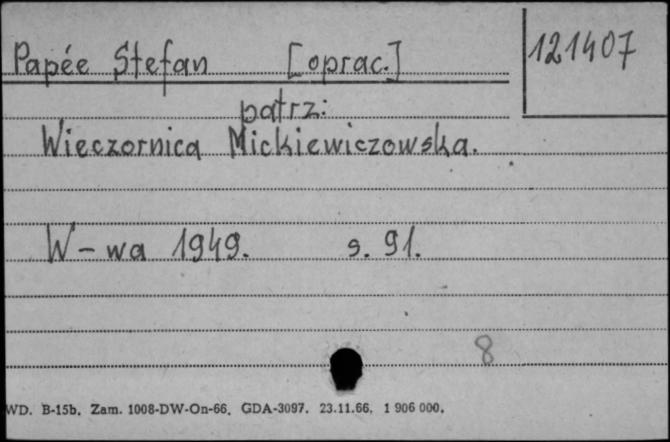 Papée Stefan [oprac.] 121407
patrz:
Wieczornica Mickiewiczowska.
W-wa 1949. s. 91.
8
WD. B-15b. Zam. 1008-DW-On-66. GDA-3097. 23.11.66. 1 906 000.